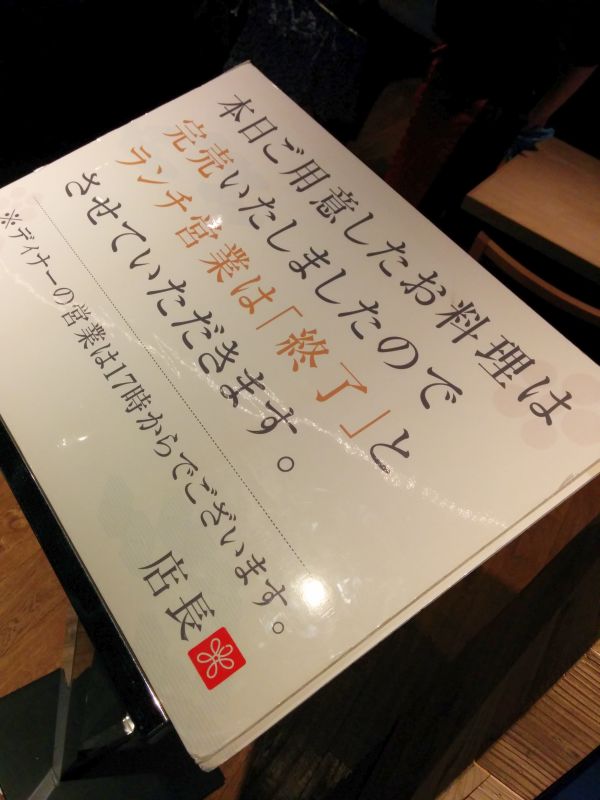 本日ご用意したお料理は
完売いたしましたので
ランチ営業は「終了」と
させていただきます。
※ディナーの営業は17時からでございます。
店長